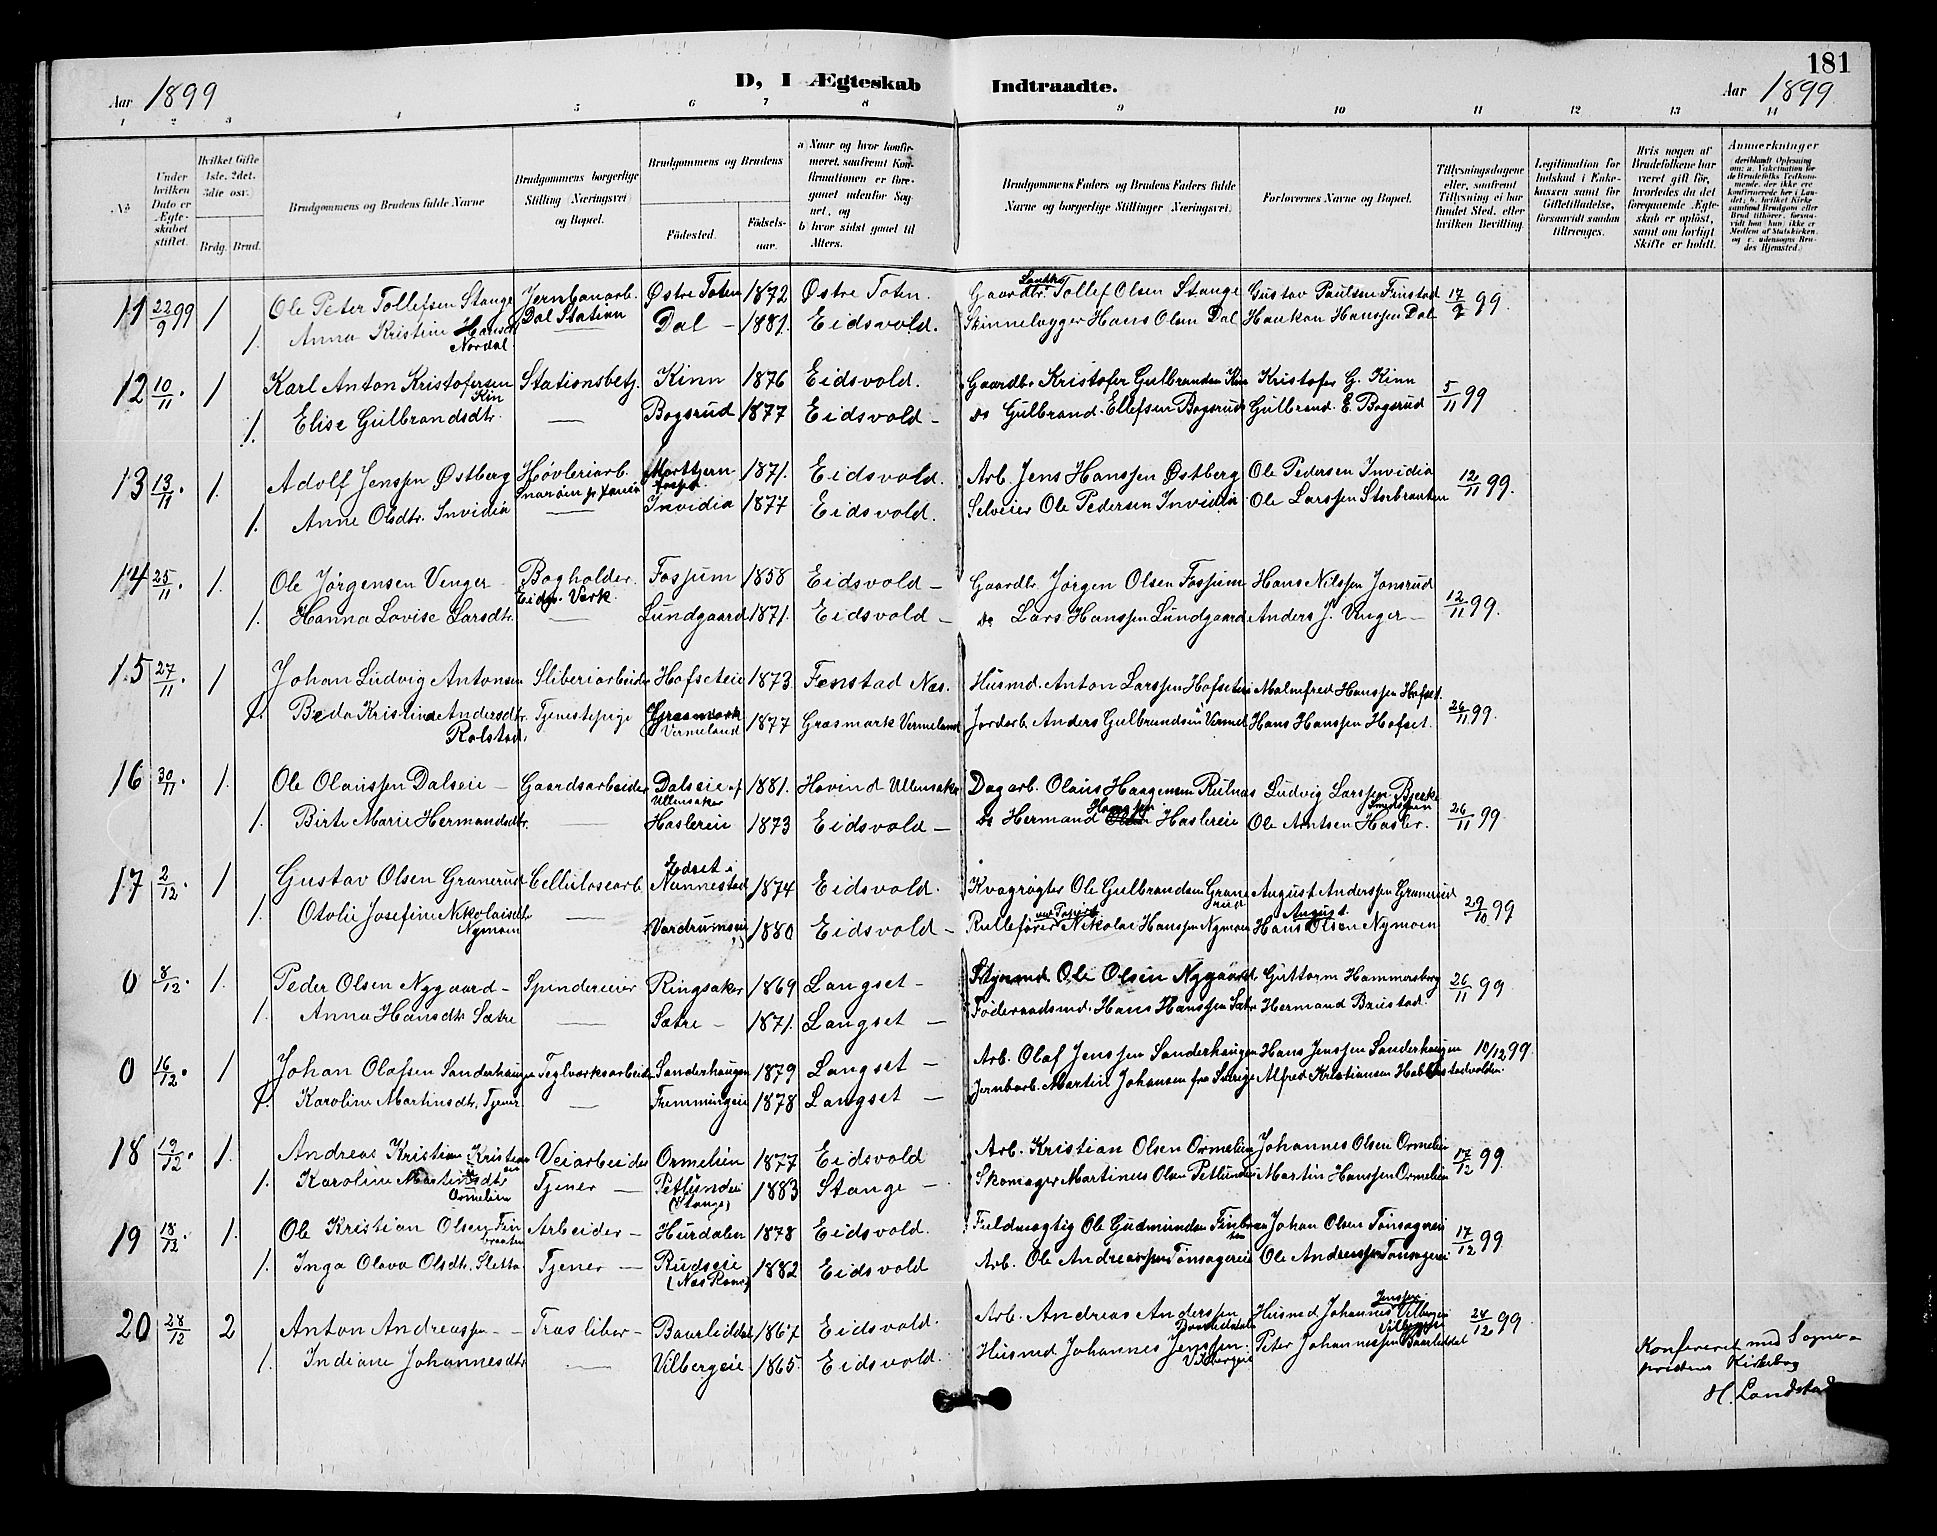 181
Aar 1899 D, I Ægteskab Indtraadte. Aar 1899
1 2 3 4 5 6 7 8 9 10 11 12 13 14
No.
Under hvilken Dato er Ægteskabet stiftet.
Hvilket Gifte 1ste, 2det, 3die osv.
Brdg. Brud.
Brudgommens og Brudens fulde Navne
Brudgommens borgerlige Stilling (Næringsvei) og Bopæl.
Brudgommens og Brudens
Fødested. Fødselsaar.
a Naar og hvor konfirmeret, saafremt Konfirmationen er foregaaet udenfor Sognet, og
b hvor sidst gaaet til Alters.
Brudgommens Faders og Brudens Faders fulde Navne og borgerlige Stillinger (Næringsvei).
Forlovernes Navne og Bopæl.
Tillysningsdagene eller, saafremt Tillysning ei har fundet Sted, efter hvilken Bevilling.
Legitimation for Indskud i Enkekassen samt for Giftetilladelse, forsaavidt saadan tiltrænges.
Hvis nogen af Brudefolkene har været gift før, hvorledes da det foregaaende Ægteskab er opløst, samt om lovligt Skifte er holdt.
Anmærkninger
11 22/9 99 1 Ole Peter Tollefsen Stange Jernbanarb. Dal Station Østre Toten 1872 Østre Toten. Gaardbr. Tollef Olsen Stange Gustav Paulsen Finstad 17/9 99
1. Anna Kristine Hansdtr. Nordal Dal – 1881. Eidsvold. Skinnelægger Hans Olsen Dal Haakon Hanssen Dal
12 10/11. 1 Karl Anton Kristofersen Kin Stationsbetj. Kinn 1876 Eidsvold. Gaardbr Kristofer Gulbrandsen Kinn Kristofer G. Kinn 5/11 99
1. Elise Gulbrandsdtr. — Bogsrud 1877 Eidsvold – do Gulbrand Ellefsen Bogsrud Gulbrand E. Bogsrud
13 13/11. 1. Adolf Jenssen Østberg Høvleriarb. 1871. Eidsvold. Arb. Jens Hanssen Østberg Ole Pedersen Invidia 12/11 99.
1. Anne Olsdtr. Invidia — Invidia 1877 Eidsvold. Selveier Ole Pedersen Invidia Ole Larssen Storbraaten
14 25/11. 1. Ole Jørgensen Venger Bogholder Eidsv. Verk. Fossum 1858 Eidsvold – Gaardbr Jørgen Olsen Fossum Hans Nilssen Jonsrud 12/11 99.
1. Hanna Lovise Larsdtr. — Lundgaard 1871. Eidsvold – do Lars Hanssen Lundgaard Anders J. Venger –
15 27/11. 1 Johan Ludvig Antonsen Sliberiarbeider Hofseteie 1873 Fenstad Næs. Husmd. Anton Larssen Hofseteie Malmfred Hanssen Hofset. 26/11 99.
1. Beda Kristina Andersdtr. Rolstad. Tjenestepige Græsmark Vermeland 1877 Græsmark Vermeland Jordarb. Anders Gulbrandsen i Vermel Hans Hanssen Hofset.
16 30/11. 1. Ole Olaussen Dalseie – Gaardsarbeider Dalseie af Ullensaker 1881. Hovind Ullensaker Dagarb. Olaus Haagensen Rulnæs Ludvig Larssen Bjerke 26/11 99
1. Birte Marie Hermandsdtr. — Haslereie 1873 Eidsvold – do Hermand Hanssen Haslereie Ole Arntsen Hasler.
17 2/12. 1 Gustav Olsen Granerud Cellulosearb. Nannestad 1874 Eidsvold. Kvægrøgter Ole Gulbrandsen Granerud August Anderssen Granerud 29/10 99
1. Otolie Josefine Nikolaisdtr. Nymoen — 1880 Eidsvold – Rulleførér Nikolai Hanssen Nymoen Hans August Olsen Nymoen
0 8/12. 1. Peder Olsen Nygaard – Spindereieier Ringsaker 1869 Langset – Ole Olsen Nygaard Guttorm Hammersborg 26/11 99
1. Anna Hansdtr. Sætre — Sætre – 1871. Langset – Føderaadsmd. Hans Hanssen Sætre Hermand Brustad.
0 16/12. 1 Johan Olafsen Sanderhaugen Teglværksarbeider Sanderhaugen 1879 Langset – Arb. Olaf Jenssen Sanderhaugen Hans Jenssen Sanderhaugen 10/12 99.
1. Karoline Martinsdtr. Tjener. — Fremmingeie 1878 Langset – Jernbarb. Martin Johansen fra Sverige Alfred Kristiansen
18 19/12. 1. Andreas Kristian Kristiansen Veiarbeider Ormelien 1877 Eidsvold Arb. Kristian Olsen Ormelien Johannes Olsen Ormelien 17/12 99
1. Karoline Martinusdtr Ormelien Tjener – (Stange) 1883 Stange – Skomager Martinus Olsen Martin Hanssen Ormelien
19 18/12 1. Ole Kristian Olsen Finbraaten Arbeider – Hurdalen 1878 Eidsvold. Fuldmægtig Ole Gudmundsen Finbraaten Johan Olsen Tønsagereie 17/12 99
1. Inga Olava Olsdtr. Sletta Tjener – Rudseie 1882 Eidsvold Arb. Ole Andreassen Tønsagereie Ole Andreassen Tønsagereie
20 28/12 2 Anton Andreassen – – Træsliber – Baarliddal 1867 Eidsvold. Arb. Andreas Anderssen Baarliddal Husmd Johannes Jenssen Vilbergeie 24/12 99
1. Indiane Johannesdtr — Vilbergeie 1865. Eidsvold. Husmd Johannes Jenssen Vilbergeie Peter Johannessen Baarliddal
Konfereret med Sognepræstens Kirkebog
H. Landstad